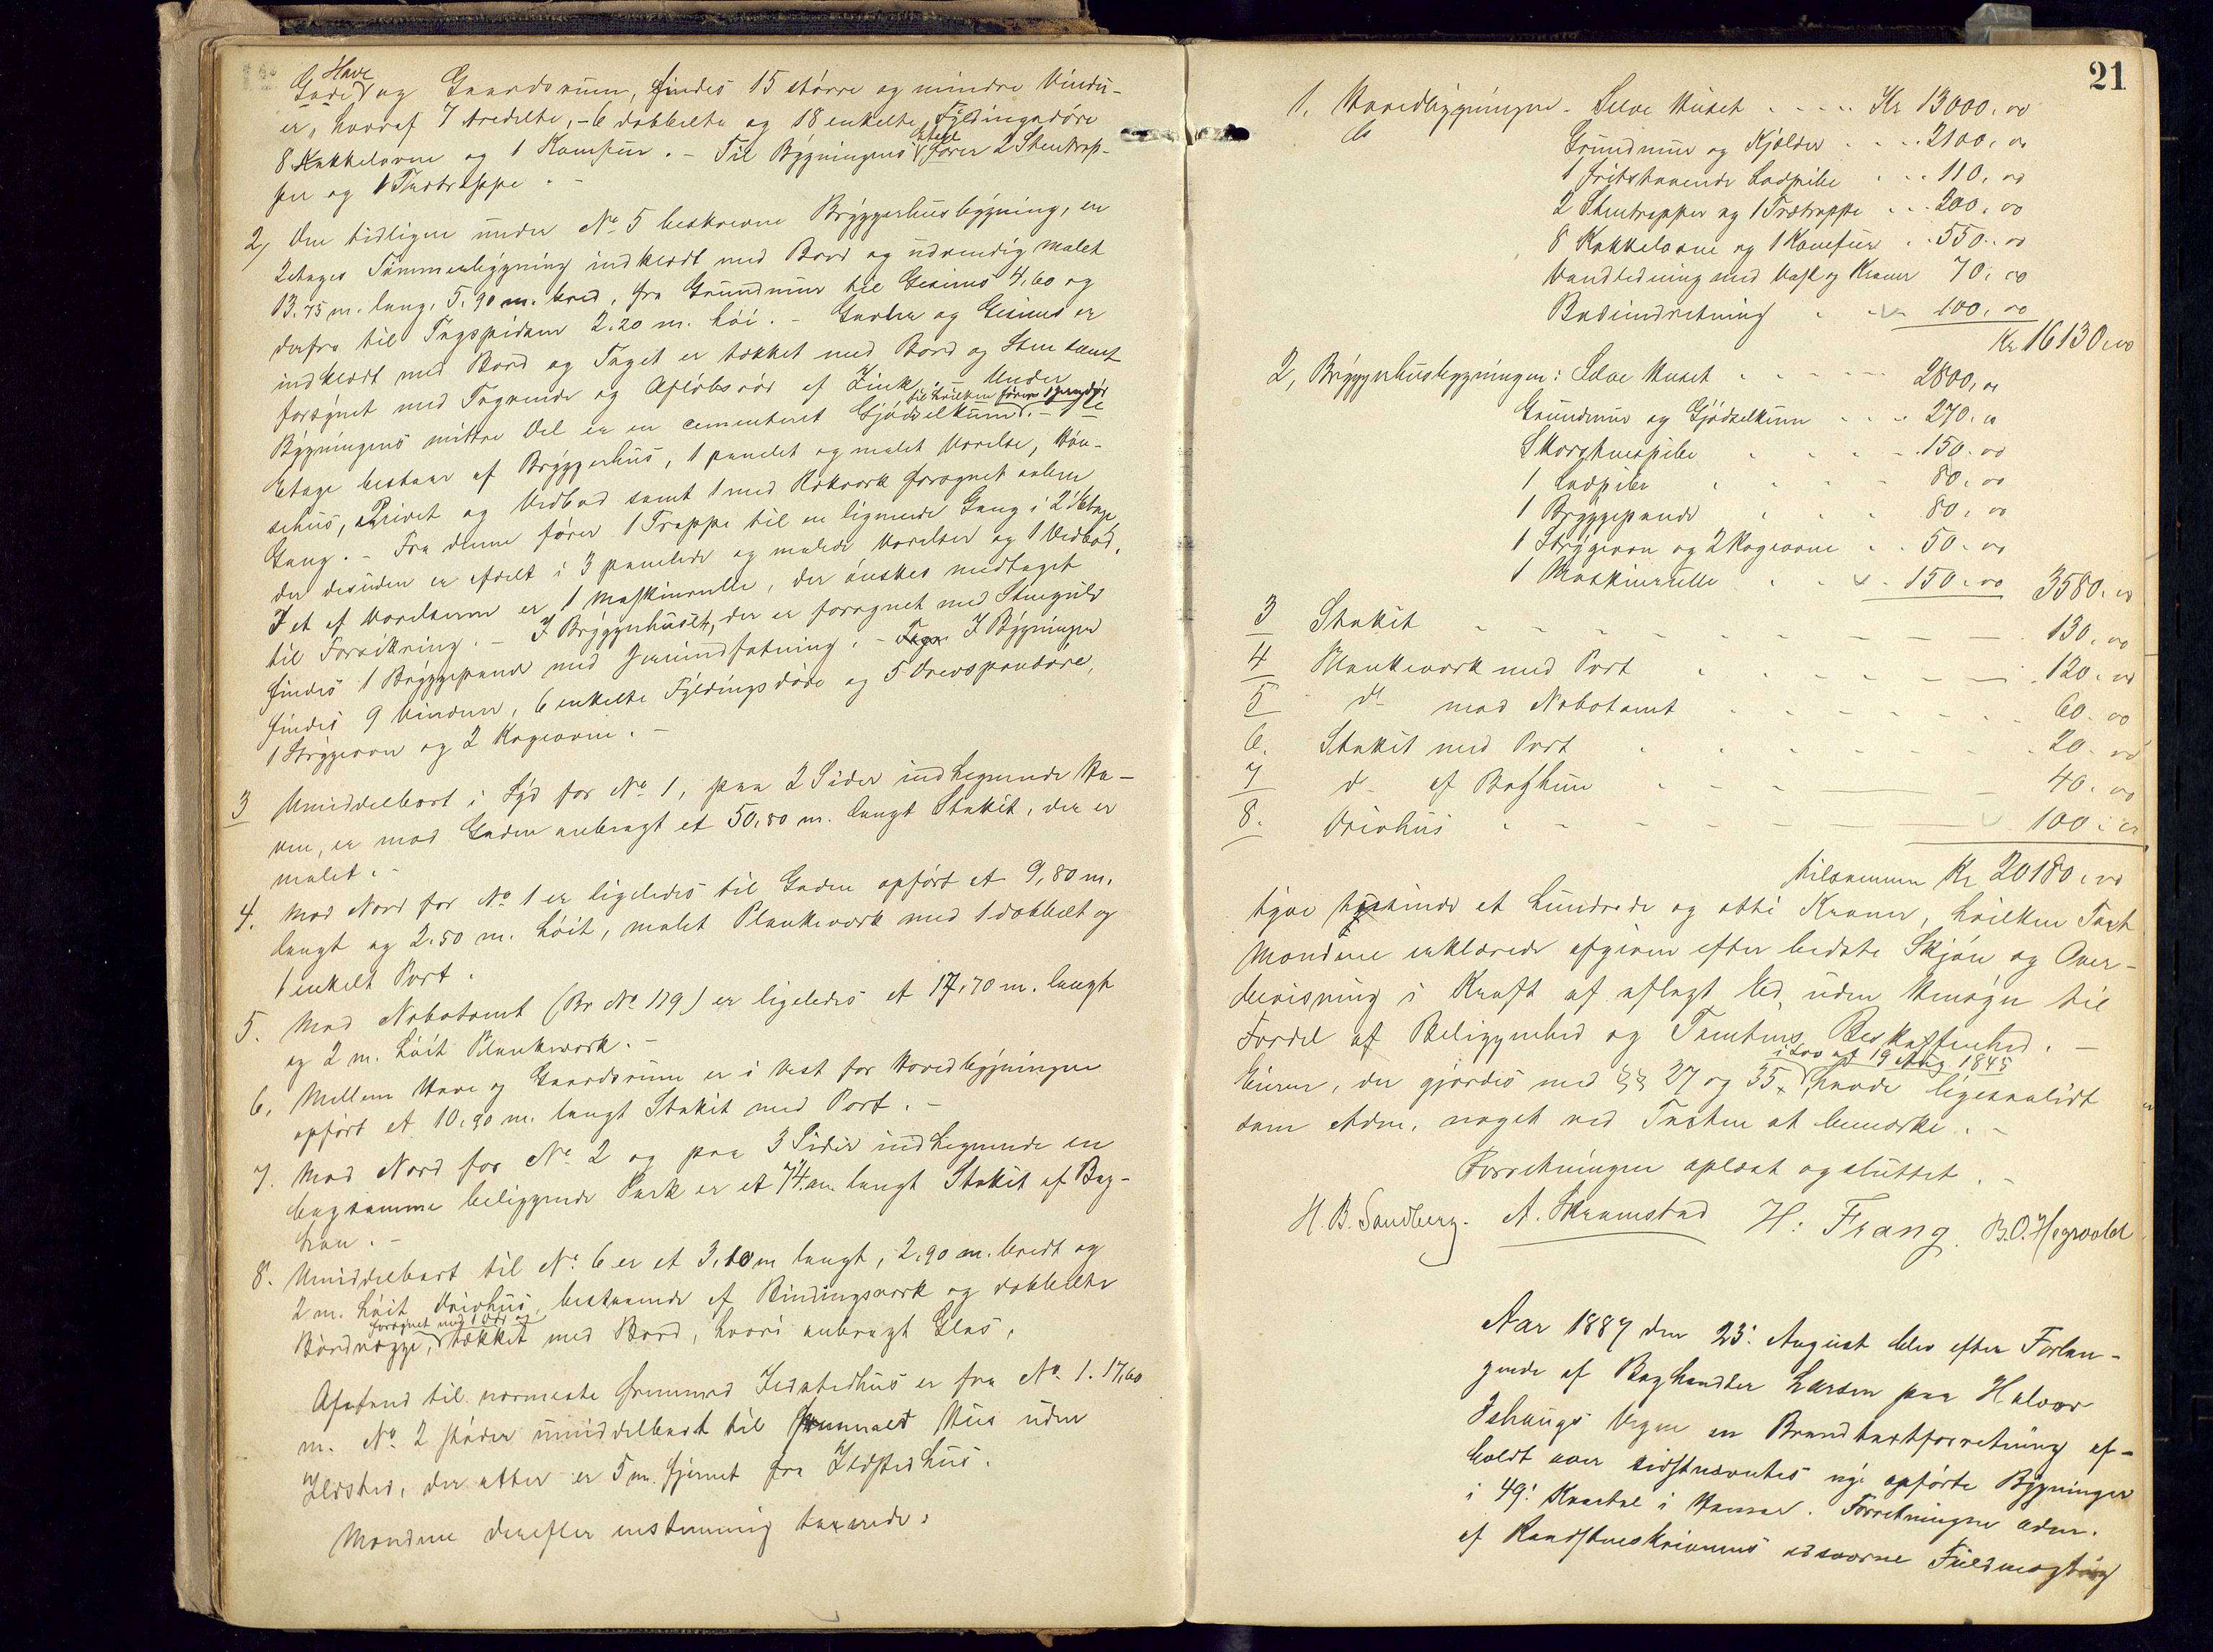 Have
Gade og Gaardsrum, findes 15 større og mindre Vindu-
er, hvoraf 7 tredelte, - 6 dobbelte og 18 enkelte Fyldingsdøre
8 Kakkelovne og 1 Komfur. - Til Bygningens 1 Etage fører 2 Stentrap-
per og 1 Trætrappe. -
2, Den tidligere under No 5 beskrevne Bryggerhusbygning, en
2etages Tømmerbygning indklædt med Bord og udvendig malet
13.75 m. lang, 5.90 m. bred, fra Grundmur til Gesims 4,60 og
derfra til Tagspidsen 2.20 m. høi. - Gavler og Gesims er
indklædt med Bord og Taget er tækket med Bord og Sten samt
forsynet med Tagrende og Afløbsrør af Zink. - Under
til hvilken fører 1 Jerndør
Bygningens midtre Del er en cementeret Gjødselkum. - 1ste
Etage bestaar af Bryggerhus, 1 panelet og malet Værelse, Høn-
sehus, Privet og Vedbod samt 1 med Rækværk forsynet aaben
Gang. - Fra denne fører 1 Trappe til en lignende Gang i 2 Etage,
der desuden er afdelt i 3 panelede og malede Værelser og 1 Vedbod.
I et af Værelserne er 1 Maskinrulle, der ønskes medtaget
til Forsikring. - I Bryggerhuset, der er forsynet med Stengulv
findes 1 Bryggepande med Jernindfatning. - I Bygningen
findes 9 Vinduer, 6 enkelte Fyldingsdøre og 5 Drevspendøre,
1 Strygeovn og 2 Kogeovne. -
3 Umiddelbart i Syd for No 1, paa 2 Sider indhegnende Ha-
ven, er mod Gaden anbragt et 50,80 m. langt Stakit, der er
malet. -
4. Mod Nord for No 1 er ligeledes til Gaden opført et 9,80 m.
langt og 2.50 m. høit, malet Plankeværk med 1 dobbelt og
1 enkelt Port.
5. Mod Nabotomt (Br No 119) er ligeledes et 17,70 m. langt
og 2 m. høit Plankeværk. -
6. Mellem Have og Gaardsrum er i Vest for Hovedbygningen
opført et 10,90 m. langt Stakit med Port. -
7. Mod Nord for No 2 og paa 3 Sider indhegnende en
bagsamme beliggende Park er et 74 m. langt Stakit af Bag-
hun. -
8. Umiddelbart til No 6 er et 3,10 m langt, 2,90 m. bredt og
2 m. høit Drivhus, bestaaende af Bindingsværk og dobbelte
forsynet med 1 Dør og
Bordvægge, tækket med Bord, hvori anbragt Glas.
Afstand til nærmeste fremmed Ildstedhus er fra No. 1. 17,60
m. No. 2 støder umiddelbart til fremmed Hus uden
Ildsted, der atter er 5 m. fjernet fra Ildstedhus.
Mændene derefter enstemmig taxerede:
21
1. Hovedbygningen - Selve Huset . . . . . Kr 13000,00
do Grundmur og Kjælder . . . . 2100,00
1 fritstaaende Ladpibe . . . 110,00
2 Stentrapper og 1 Trætrappe . . . 200,00
8 Kakkelovne og 1 Komfur . . 550,00
Vandledning med Vask og Kraner 70,00
Badeindretning . . . 100,00
Kr 16130,00
2, Bryggerhusbygningen: Selve Huset . . . . . 2800,00
Grundmur og Gjødselkum . . . . 270,00
Skorstenspibe . . . . . 150,00
1 Ladpibe . . . . . 80,00
1 Bryggepande . . . . 80,00
1 Strygeovn og 2 Kogeovne . . 50,00
1 Maskinrulle . . . 150,00 3580,00
3 Stakit . . . . . . . . 130,00
4 Plankeværk med Port . . . . . . 120,00
5 do mod Nabotomt . . . . . . 60,00
6. Stakit med Port . . . . . . 20,00
7 do af Baghun . . . . 40,00
8. Drivhus . . . . . 100,00
tilsammen Kr 20180,00
tyve tusinde et hundrede og otti Kroner, hvilken Taxt
Mændene erklærede afgiven efter bedste Skjøn og Over-
bevisning i Kraft af aflagt Ed, uden Hensyn til
Fordel af Beliggenhed og Tomtens Beskaffenhed. -
i Lov af 19 Aug 1845
Eieren, der gjordes med §§ 27 og 35, havde ligesaalidt
som Adm. noget ved Taxten at bemærke. -
Forretningen oplæst og sluttet. -
H. B. Sandberg. A. Skramstad H: Frang. B.O. Hegvold
Aar 1887 den 23. August blev efter Forlan-
gende af Boghandler Larsen paa Halvor
Ishaugs Vegne en Brandtaxtforretning af-
holdt over sidstnævntes nye opførte Bygninger
i 49. Kvartal i Hamar. Forretningen adm.
af Raadstueskriverens edsvorne Fuldmægtig